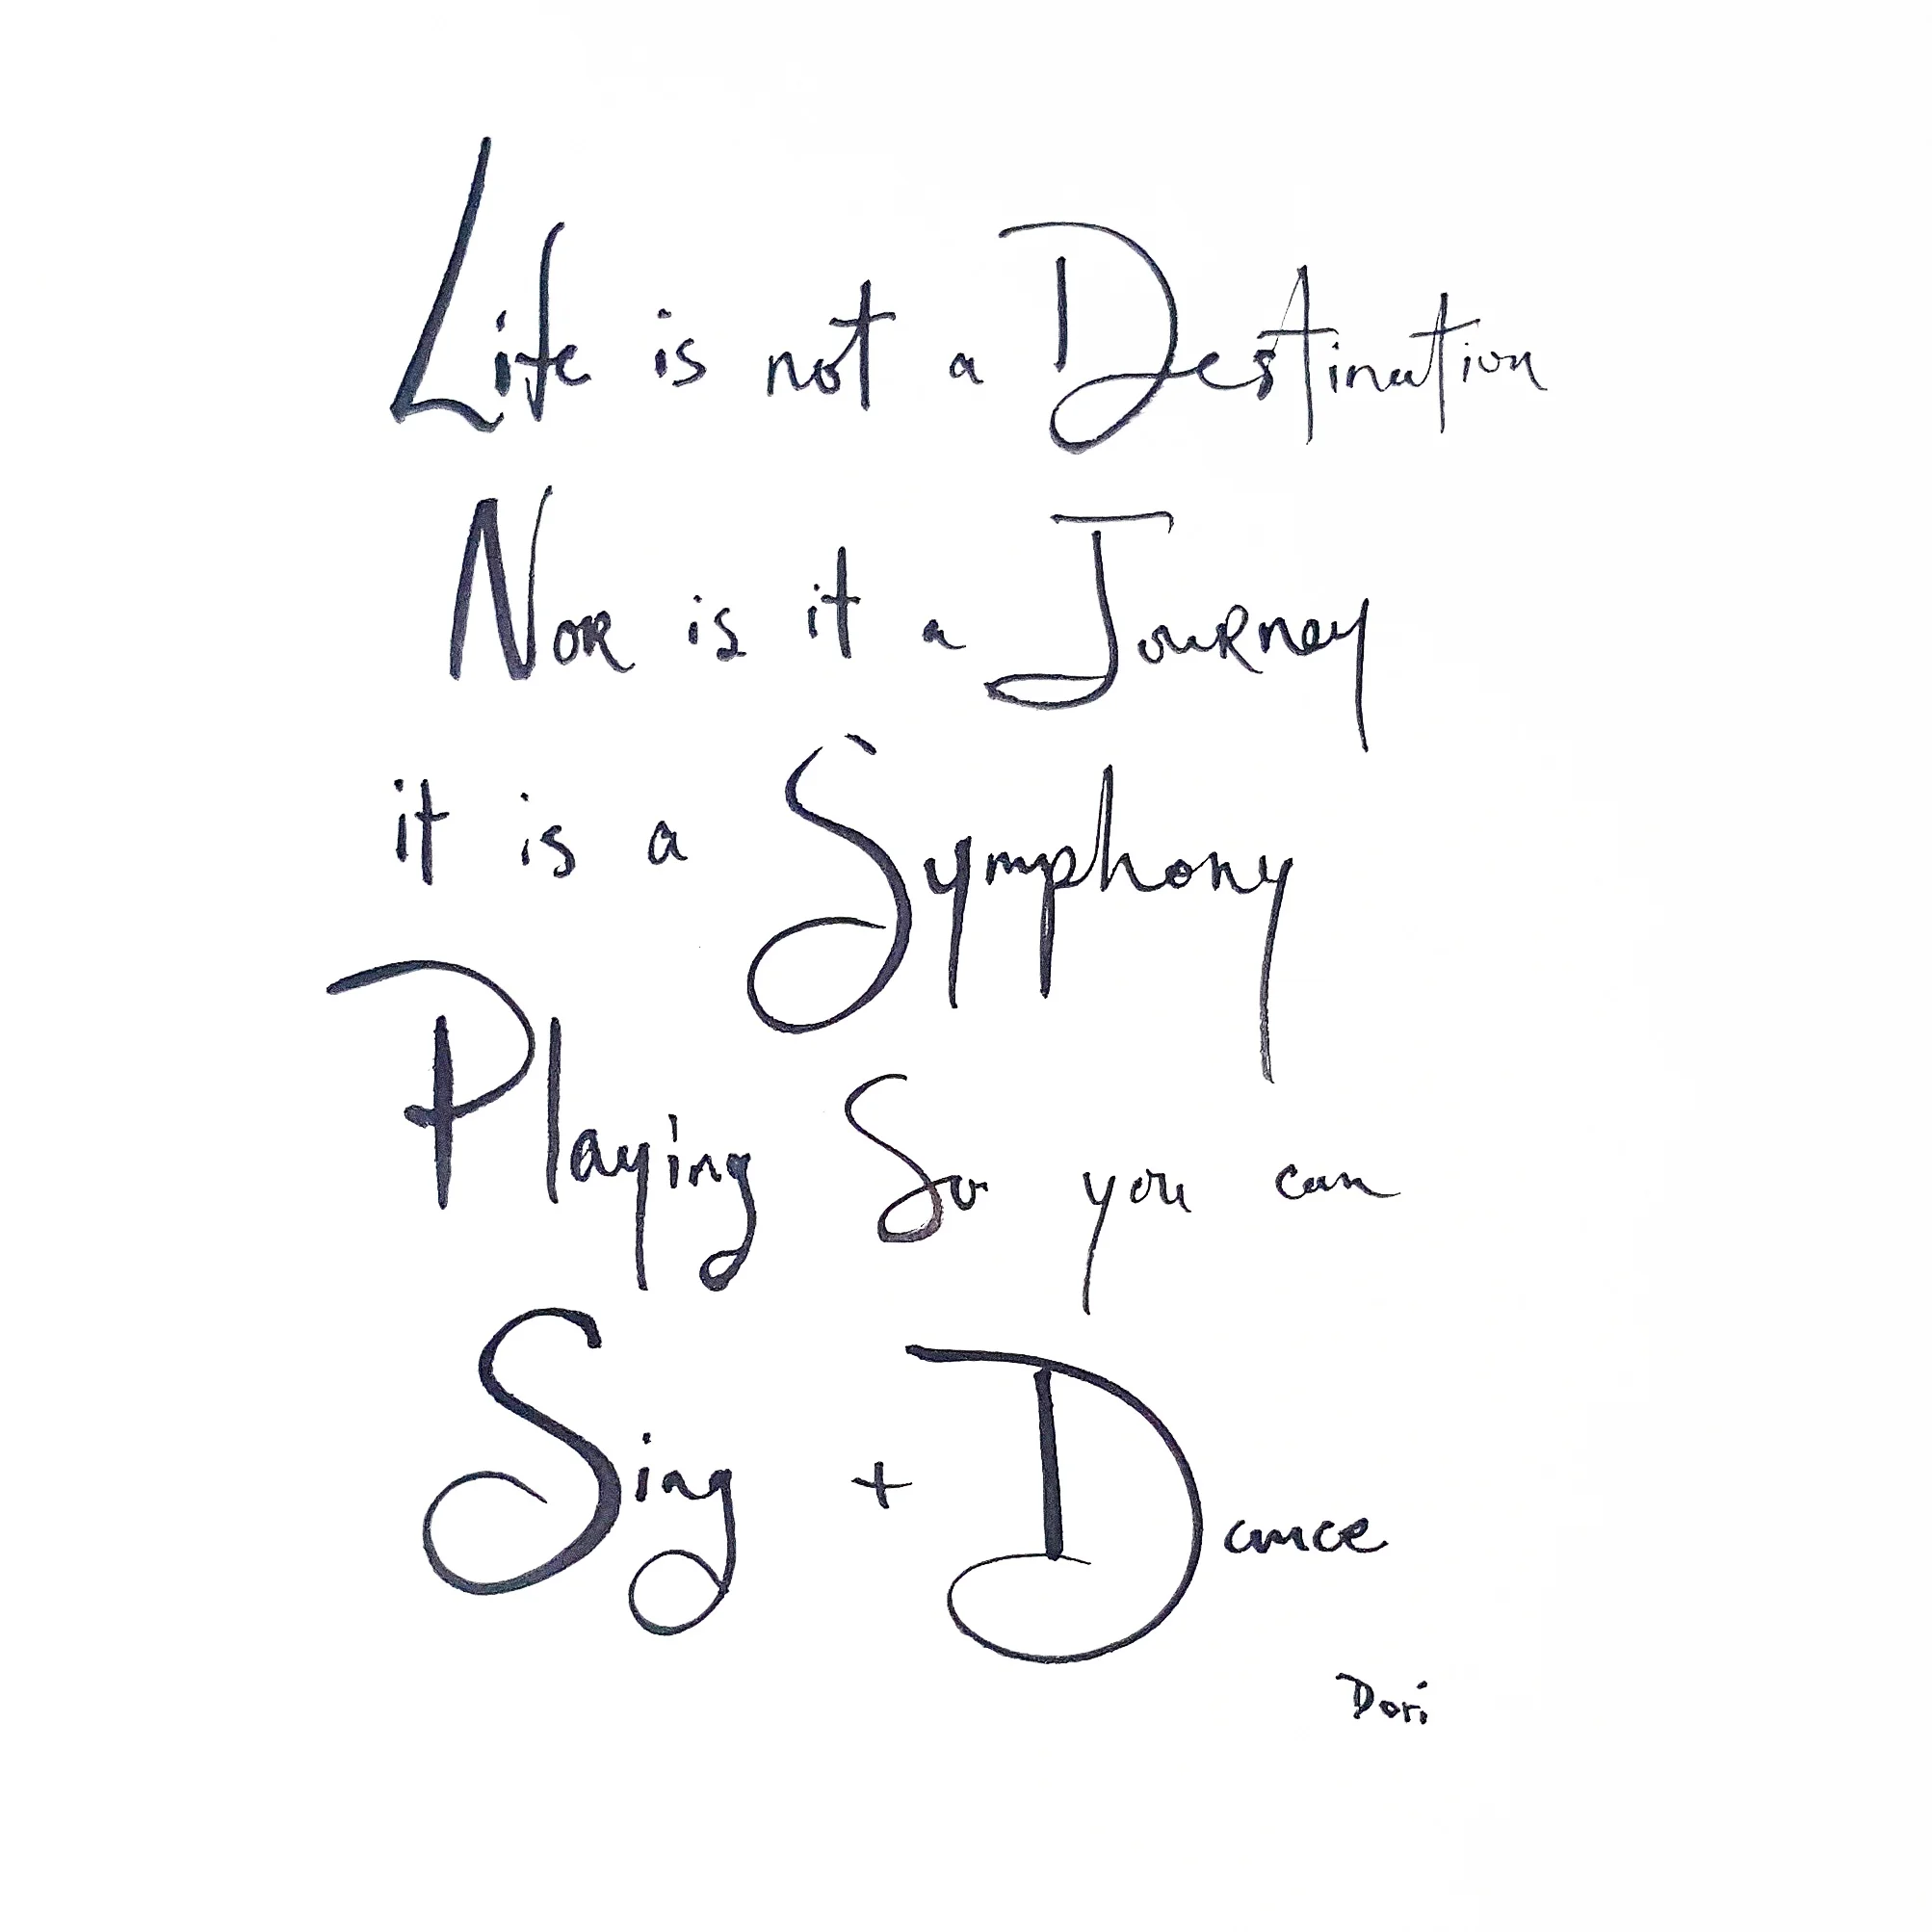 Life is not a Destination
Nor is it a Journey
it is a Symphony
Playing So you can
Sing + Dance
Dori